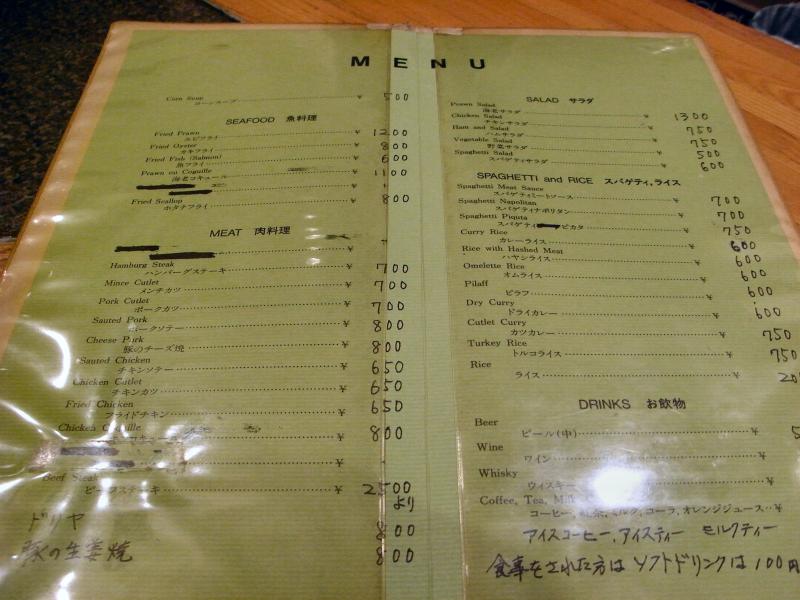 MENU
Corn Soup
コーンスープ ¥ 500
SEAFOOD 魚料理
Fried Prawn
エビフライ ¥ 1200
Fried Oyster
カキフライ ¥ 800
Fried Fish (Salmon)
魚フライ ¥ 600
Prawn en Coguille
海老コキュール ¥ 1100
Fried Scallop
ホタテフライ ¥ 800
MEAT 肉料理
¥
Hamburg Steak
ハンバーグステーキ ¥ 700
Mince Cutlet
メンチカツ ¥ 700
Pork Cutlet
ポークカツ ¥ 700
Sauted Pork
ポークソテー ¥ 800
Cheese Pork
豚のチーズ焼 ¥ 800
Sauted Chicken
チキンソテー ¥ 650
Chicken Cutlet
チキンカツ ¥ 650
Fried Chicken
フライドチキン ¥ 650
Chicken Coguille
キュール ¥ 800
¥
Beef Steak
ビーフステーキ ¥ 2500
より
ドリヤ 800
豚の生姜焼 800
SALAD サラダ
Prawn Salad
海老サラダ ¥ 1300
Chicken Salad
チキンサラダ ¥ 750
Ham and Salad
ハムサラダ ¥ 750
Vegetable Salad
野菜サラダ ¥ 500
Spaghetti Salad
スパゲティサラダ ¥ 600
SPAGHETTI and RICE スパゲティ,ライス
Spaghetti Meat Sauce
スパゲティミートソース ¥ 700
Spaghetti Napolitan
スパゲティナポリタン ¥ 700
Spaghetti Piquta
スパゲティ ピカタ ¥ 750
Curry Rice
カレーライス ¥ 600
Rice with Hashed Meat
ハヤシライス ¥ 600
Omelette Rice
オムライス ¥ 600
Pilaff
ピラフ ¥ 600
Dry Curry
ドライカレー ¥ 600
Cutlet Curry
カツカレー ¥ 750
Turkey Rice
トルコライス ¥ 750
Rice
ライス ¥ 20
DRINKS お飲物
Beer
ビール(中) ¥ 5
Wine
ワイン ¥
Whisky
ウィスキー ¥
Coffee, Tea, Milk
コーヒー,紅茶,ミルク,コーラ,オレンジジュース ¥
アイスコーヒー,アイスティー ミルクティー
食事をされた方は ソフトドリンクは 100円